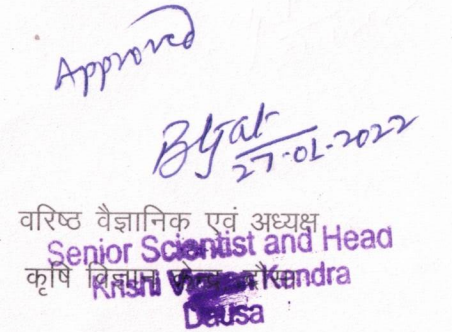 Approved
27-01-2022
वरिष्ठ वैज्ञानिक एवं अध्यक्ष
Senior Scientist and Head
कृषि विज्ञान केन्द्र दौसा
Krishi Kendra
Dausa